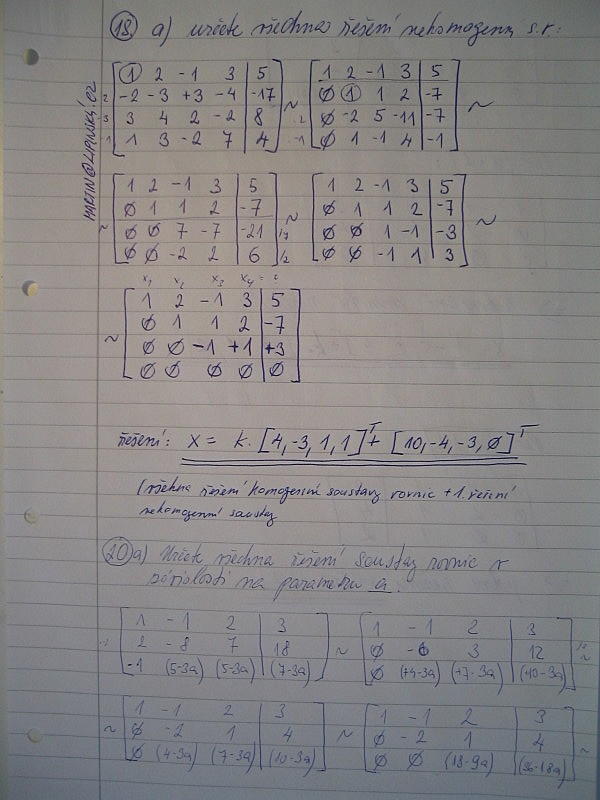 18. a) určete všechna řešení nehomogenní s.r.:
MARTIN@LIPINSKÝ.CZ
1 2 -1 3 | 5
-2 -3 +3 -4 | -17
3 4 2 -2 | 8
1 3 -2 7 | 4
~
1 2 -1 3 | 5
0 1 1 2 | -7
0 -2 5 -11 | -7
0 1 -1 4 | -1
~
1 2 -1 3 | 5
0 1 1 2 | -7
0 0 7 -7 | -21
0 0 -2 2 | 6
~
1 2 -1 3 | 5
0 1 1 2 | -7
0 0 1 -1 | -3
0 0 -1 1 | 3
~
x1 x2 x3 x4 =
1 2 -1 3 | 5
0 1 1 2 | -7
~ 0 0 -1 +1 | +3
0 0 0 0 | 0
řešení: x = k. [4,-3,1,1]T + [10,-4,-3,0]T
(všechna řešení homogenní soustavy rovnic + 1. řešení
nehomogenní soustavy
20 a) Určete všechna řešení soustav rovnic v
závislosti na parametru a.
1 -1 2 | 3
2 -8 7 | 18
-1 (5-3a) (5-3a) | (7-3a)
~
1 -1 2 | 3
0 -6 3 | 12
0 (+4-3a) (+7-3a) | (+10-3a)
~
1 -1 2 | 3
0 -2 1 | 4
0 (4-3a) (7-3a) | (10-3a)
~
1 -1 2 | 3
0 -2 1 | 4
0 0 (18-9a) | (36-18a)
~